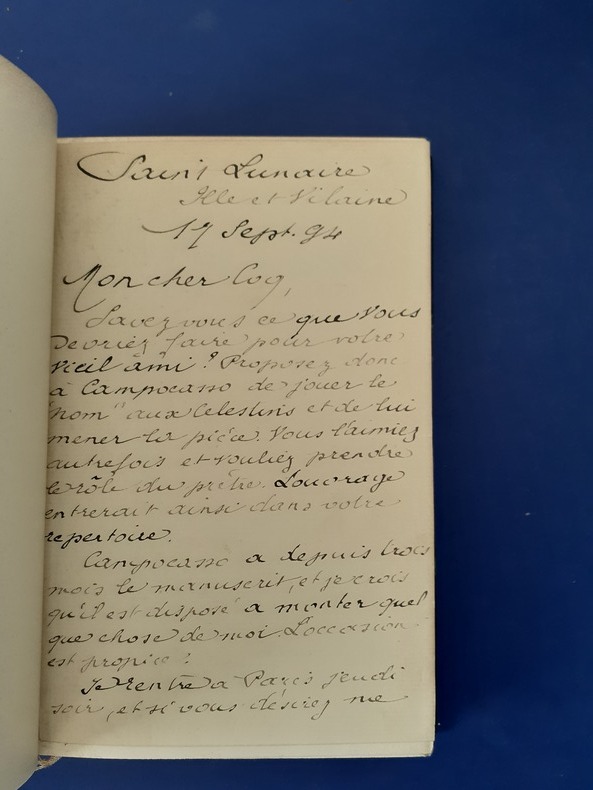 Saint Lunaire
Ille et Vilaine
17 Sept. 94
Mon cher Coq,
Savez vous ce que vous
devriez faire pour votre
vieil âmi ? Proposez donc
à Campocasso de jouer le
"Nom" aux Celestins et de lui
mener la pièce. Vous l'aimiez
autrefois et vouliez prendre
le rôle du prêtre. L'ouvrage
entrerait ainsi dans votre
repertoire.
Campocasso a depuis trois
mois le manuscrit, et je crois
qu'il est disposé a monter quel
que chose de moi. L'occasion
est propice !
Je rentre a Paris jeudi
soir, et si vous désirez me